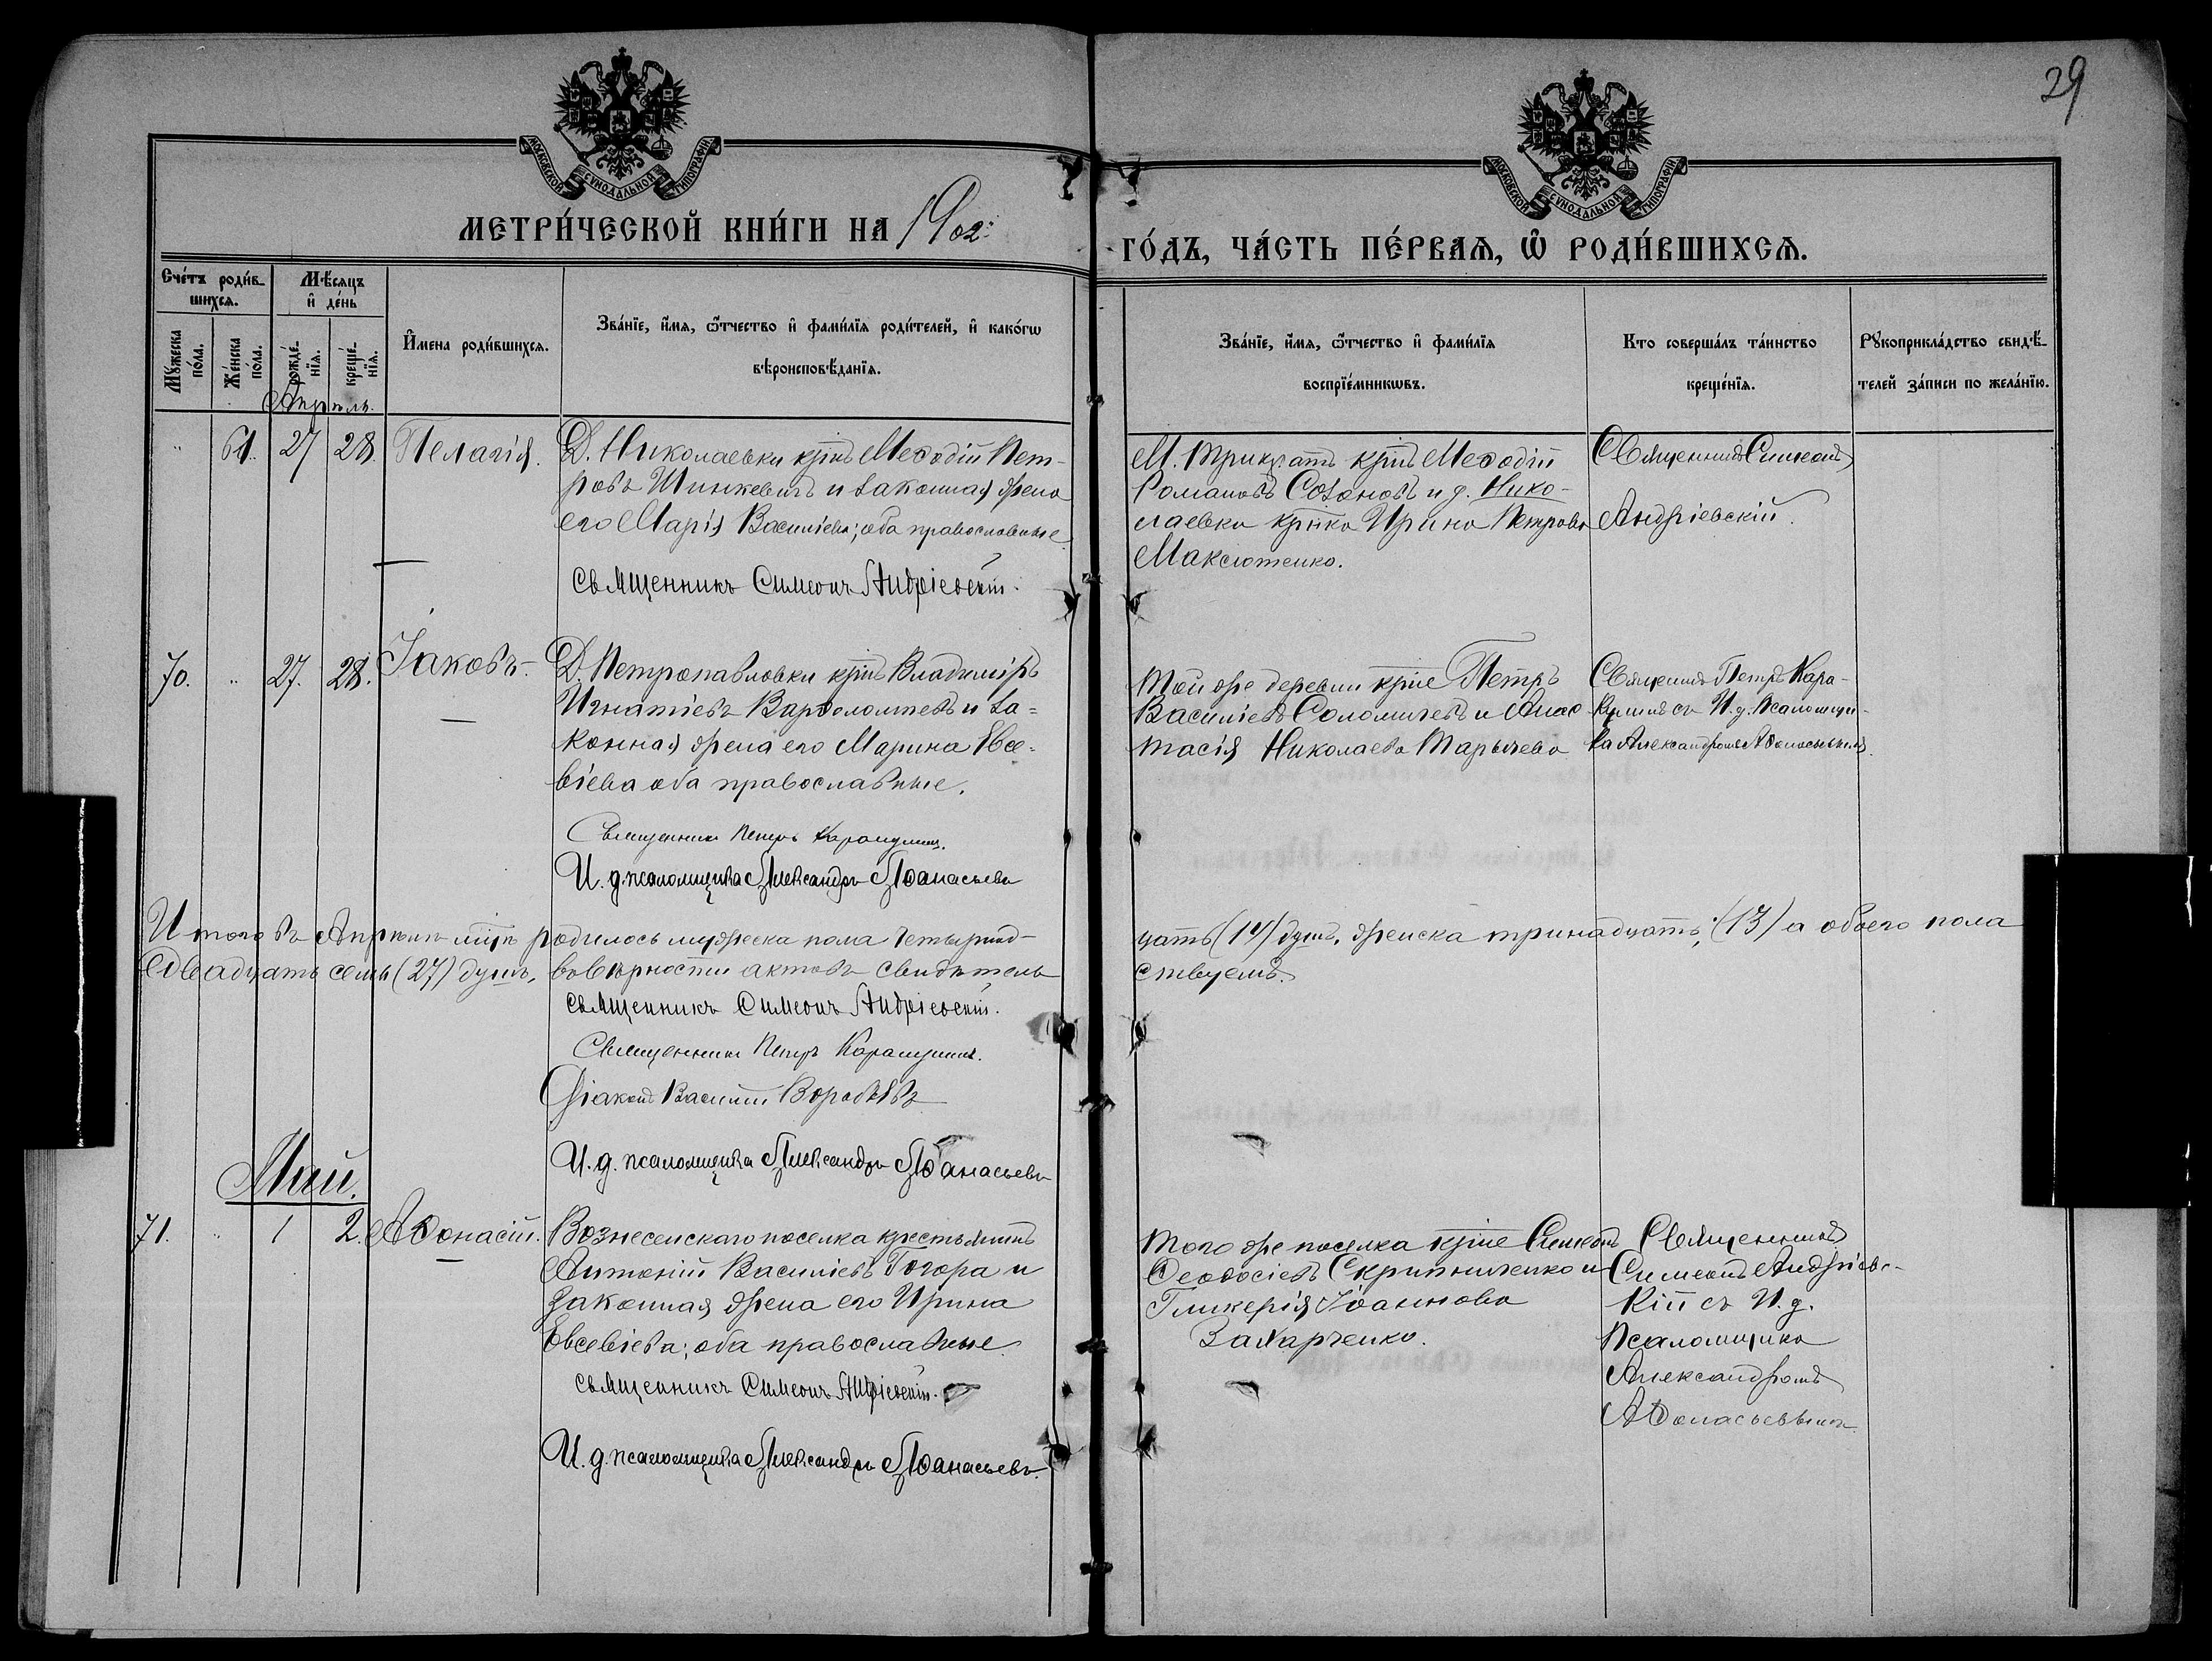 29
МОСКОВСКОЙ СУНОДАЛЬНОЙ ТИПОГРАФИИ
МОСКОВСКОЙ СУНОДАЛЬНОЙ ТИПОГРАФИИ
МЕТРИ́ЧЕСКОЙ КНИ́ГИ НА 1902
ГО́ДЪ, ЧА́СТЬ ПЕ́РВАѦ, Ѡ҆ РОДИ́ВШИХСѦ.
Сче́тъ роди́в-
шихсѧ.
Мѣ́сѧцъ
и҆ де́нь
Мꙋ́жеска
по́ла.
Же́нска
по́ла.
рожде́-
нїѧ.
креще́-
нїѧ.
И҆мена роди́вшихсѧ.
Зва́нїе, и҆́мѧ, ѻ҆́тчество и҆ фами́лїѧ роди́телей, и҆ како́гѡ
вѣроисповѣ́данїѧ.
Зва́нїе, и҆́мѧ, ѻ҆́тчество и҆ фами́лїѧ
воспрїе́мникѡвъ.
Кто соверша́лъ та́инство
креще́нїѧ.
Рꙋкоприкла́дство свидѣ́-
телей за́писи по жела́нїю.
Апрѣль.
" 61. 27 28. Пелагія.
Д. Николаевки кр̅нъ Меѳодій Пет-
ровъ Шинкевичъ и законная жена
его Марія Василіева; оба православные
Священникъ Симеонъ Андріевскій.
М. Трикратъ кр̅нъ Меѳодій
Романовъ Созоновъ и д. Нико-
лаевки кр̅нка Ирина Петрова
Максютенко.
Священникъ Симеонъ
Андріевскій.
70. " 27. 28. Іаковъ.
Д. Петропавловки кр̅нъ Владиміръ
Игнатіевъ Варѳоломеевъ и за=
конная жена его Марина Евсе=
віева оба православные.
Священникъ Петръ
И. д. псаломщика Александръ Аѳанасьевъ
Той же деревни кр̅не Петръ
Василіевъ и Анас-
тасія Николаева
Священникъ Петръ Кара-
съ И. д. Псаломщи-
ка Александромъ Аѳанасьевымъ.
Итого въ Апрѣлѣ м̅цѣ родилось мужеска пола четырнад-
цать (14) душъ, женска тринадцать, (13) а обоего пола
двадцать семь (27) душъ, во вѣрности актовъ свидѣтель-
ствуемъ.
Священникъ Симеонъ Андріевскій.
Священникъ Петръ
Діаконъ Василій Воробьевъ
И. д. псаломщика Александръ Аѳанасьевъ
Май.
71. " 1 2. Аѳонасій.
Вознесенскаго поселка крестьянинъ
Антоній Василіевъ Гогора и
законная жена его Ирина
Евсевіева; оба православные
Священникъ Симеонъ Андріевскій.
И. д. псаломщика Александръ Аѳанасьевъ.
Того же поселка кр̅не Симеонъ
Ѳеодосіевъ Скрипниченко и
Гликерія Іоаннова
Захарченко.
Священникъ
Симеонъ Андріевс-
кій съ И. д.
Псаломщика
Александромъ
Аѳонасьевымъ